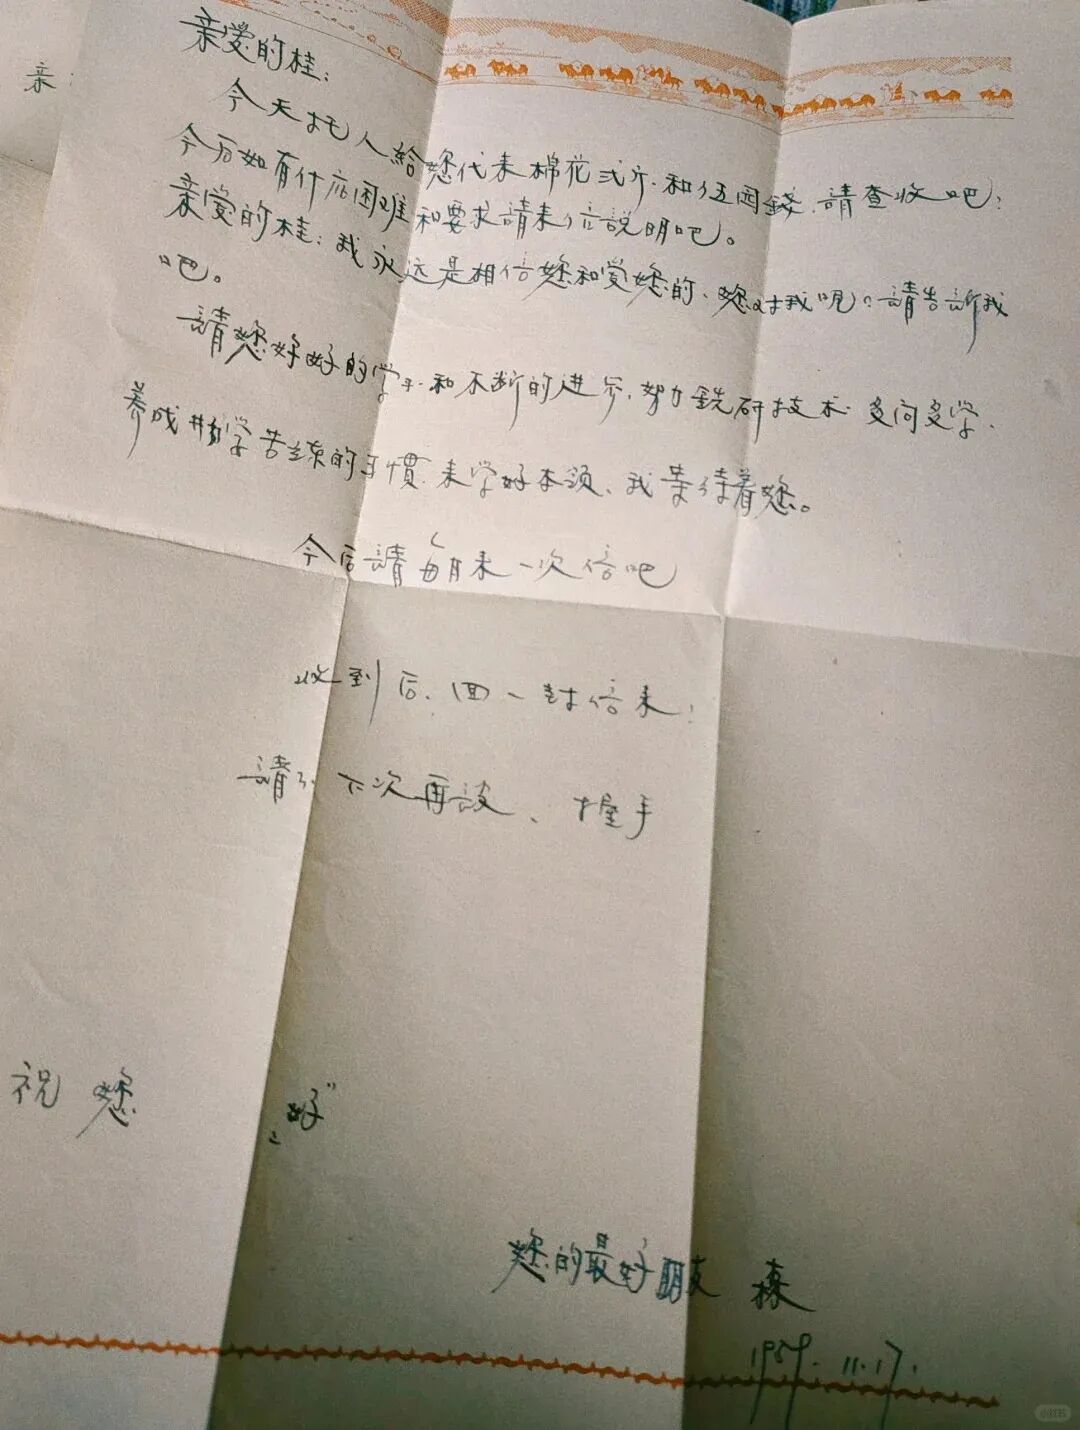 亲爱的桂：
今天托人給您代来棉花弍斤.和伍园錢.請查收吧！
今后如有什么困难和要求請来信說明吧。
亲爱的桂：我永远是相信您和爱您的、您对我呢？請告訴我
吧。
請您好好的学习.和不断的进步.努力鉆研技术.多问多学.
养成勤学苦练的习惯.来学好本领、我等待着您。
今后請每月来一次信吧
收到后.回一封信来！
請了下次再谈、握手
祝 您
"好"
您的最好朋友 森
1959.11.17.
亲